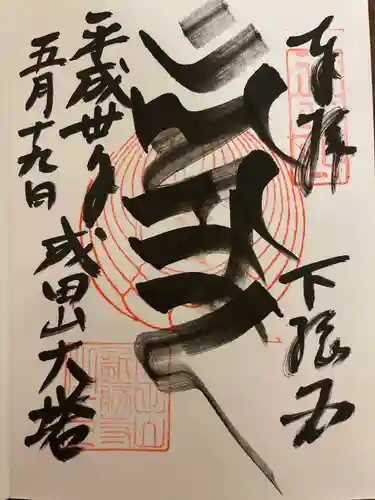 奉拝
下総国
平成丗年
五月十九日
成田山大塔